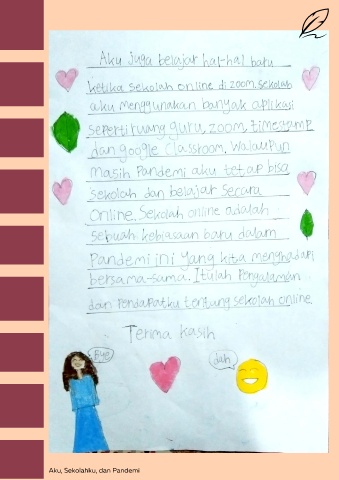 Aku juga belajar hal-hal baru
ketika sekolah online di zoom. Sekolah
aku menggunakan banyak aplikasi
seperti ruang guru, zoom, timestamp
dan google classroom, walaupun
masih Pandemi aku tetap bisa
sekolah dan belajar secara
online. Sekolah online adalah
sebuah kebiasaan baru dalam
Pandemi ini yang kita menghadapi
bersama-sama. Itulah Pengalaman
dan Pendapatku tentang sekolah online.
Terima kasih
Bye
dah
Aku, Sekolahku, dan Pandemi